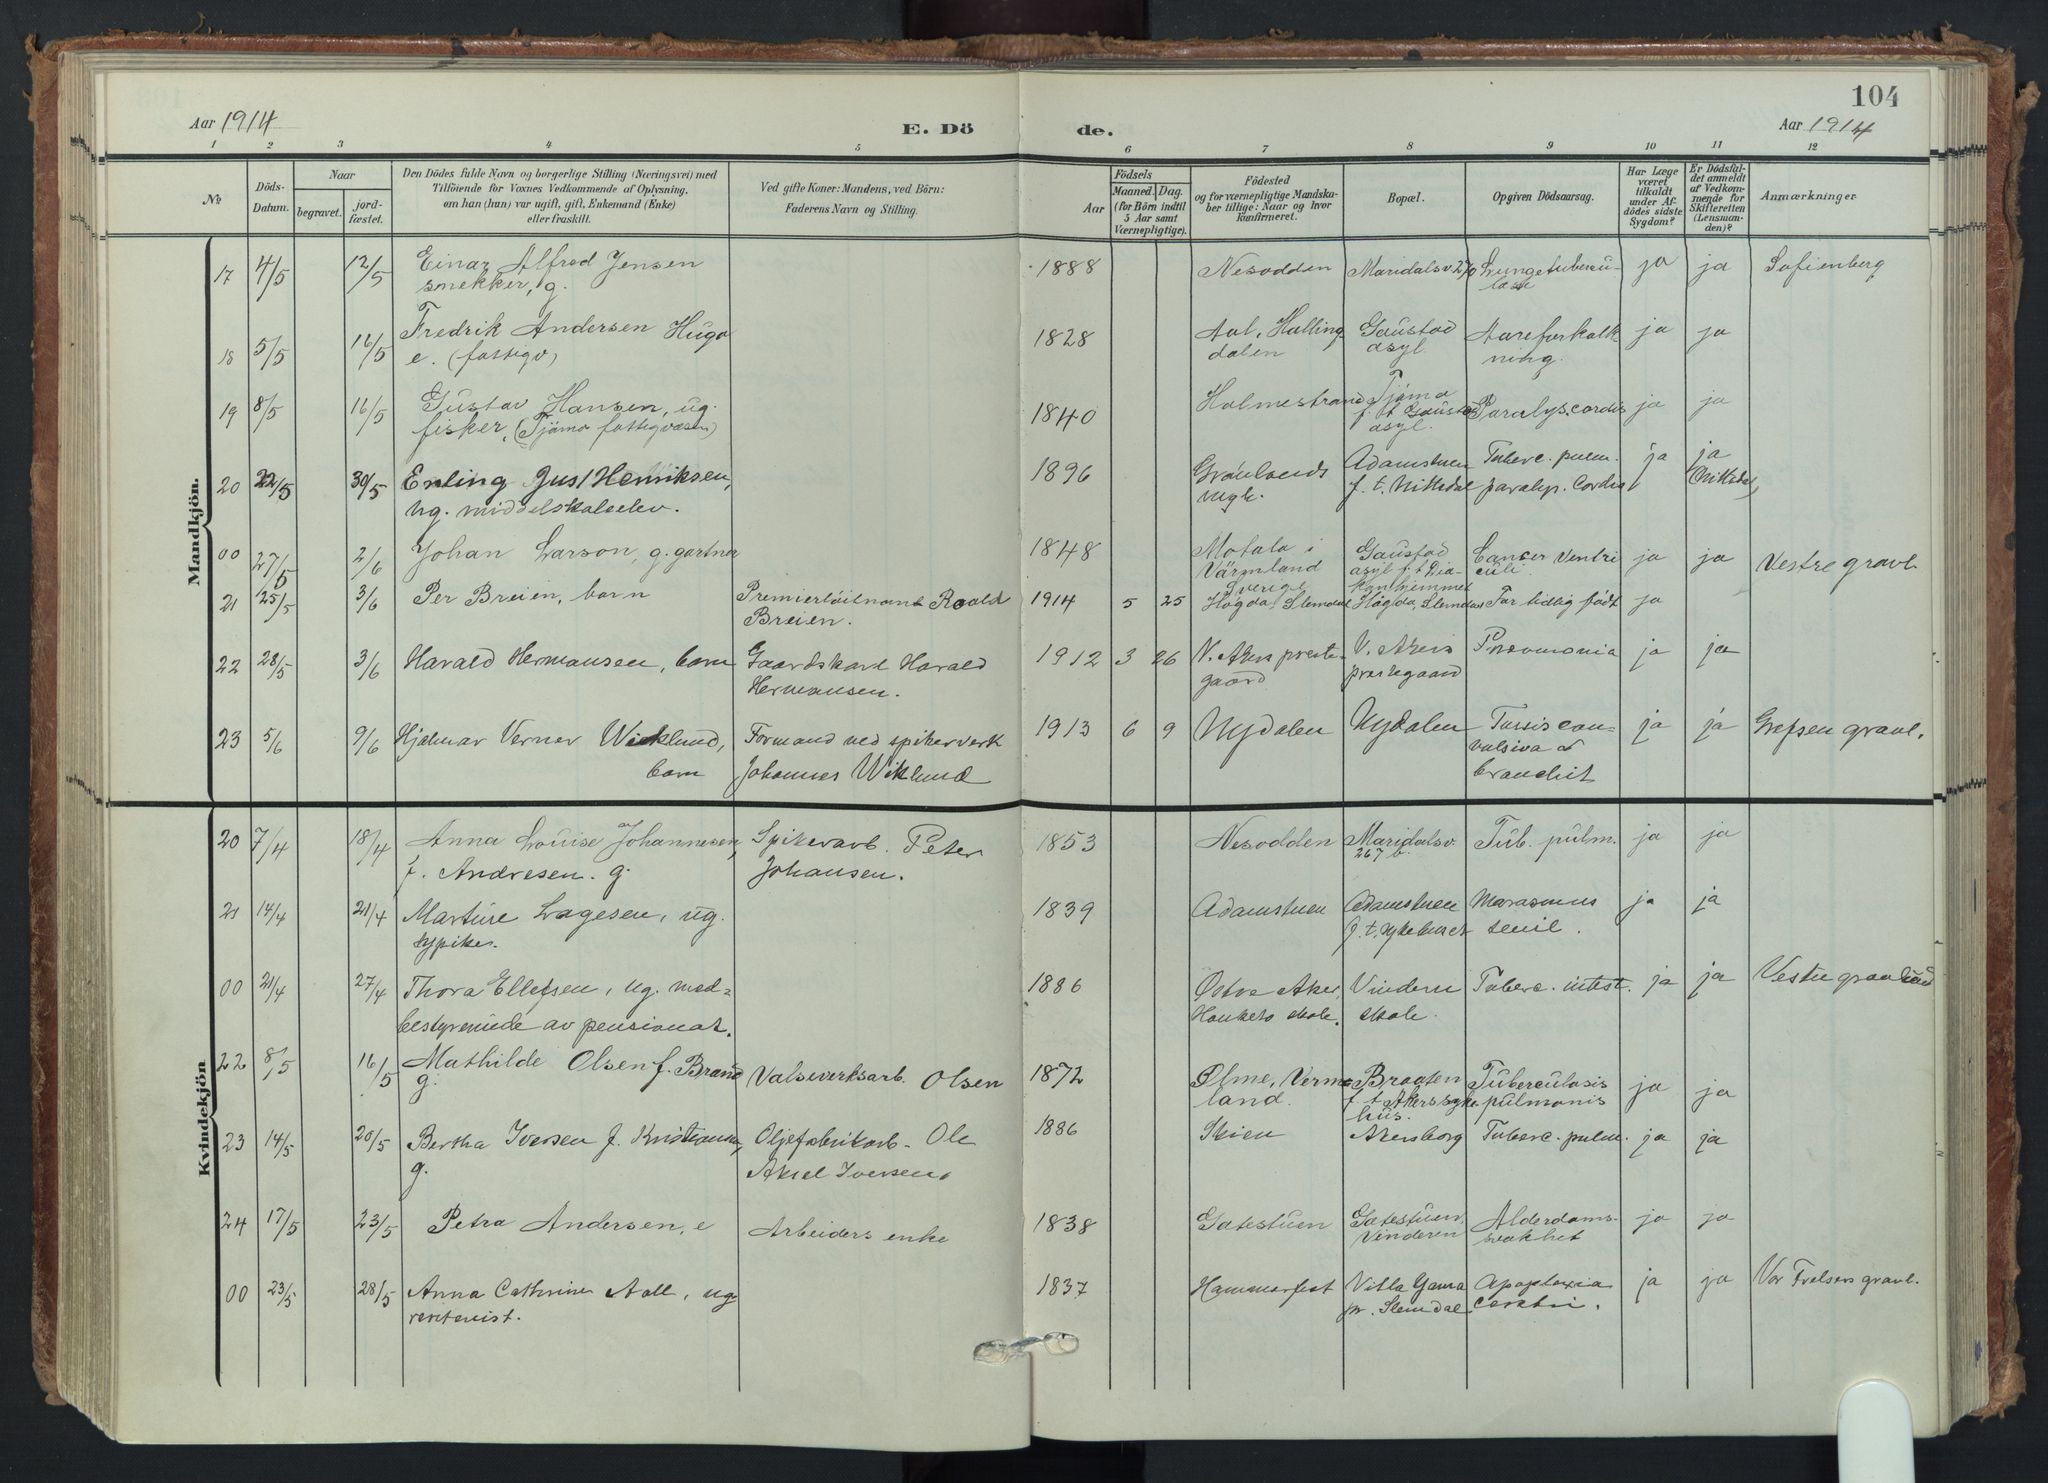 104
Aar 1914
E. Dö
de.
Aar 1914
1 2 3 4 5 6 7 8 9 10 11 12
№
Döds-Datum.
Naar
begravet.
jord-fæstet.
Den Dödes fulde Navn og borgerlige Stilling (Næringsvei) med
Tilföiende for Voxnes Vedkommende af Oplysning,
om han (hun) var ugift, gift, Enkemand (Enke)
eller fraskilt.
Ved gifte Koner: Mandens, ved Börn:
Faderens Navn og Stilling.
Födsels
Aar
Maaned. Dag.
(for Börn indtil
5 Aar samt
Værnepligtige).
Födested
og for værnepligtige Mandska-
ber tillige: Naar og hvor
konfirmeret.
Bopæl.
Opgiven Dödsaarsag.
Har Læge
været
tilkaldt
under Af-
dödes sidste
Sygdom?
Er Dödsfal-
det anmeldt
af Vedkom-
mende for
Skifteretten
(Lensman-
den)?
Anmærkninger
Mandkjön.
17 4/5 12/5 Einar Alfred Jensen 1888 Nesodden Maridalsv. 270 Lungetubercu- ja ja Sofienberg
snekker, g. lose
18 5/5 16/5 Fredrik Andersen Hugo 1828 Aal, Halling Gaustad Aareforkalk- ja ja
e. (fattigv) dalen asyl. ning.
19 8/5 16/5 Gustav Hansen, ug. 1840 Holmestrand Tjømø Paralys. cordis ja ja
fisker, (Tjømø fattigvæsen) f. t. Gaustad
asyl.
20 22/5 30/5 Erling Just Henriksen, 1896 Grønlands Adamstuen Tuberc. pulm. ja ja
ug. middelskoleelev. mgh. f. t. Nittedal paralys. Cordis (Nittedal)
00 27/5 2/6 Johan Larson, g. gartner 1848 Motala i Gaustad Cancer Ventri ja ja Vestre gravl.
Värmland asyl f. t. Dia- culi
Sverige konhjemmet
21 25/5 3/6 Per Breien, barn Premierløitnant Roald 1914 5 25 Høgda, Slemdal Høgda, Slemdal For tidlig født ja
Breien.
22 28/5 3/6 Harald Hermansen, barn Gaardskarl Harald 1912 3 26 V. Akers preste- V. Akers Pneumonia ja ja
Hermansen. gaard prestegaard
23 5/6 9/6 Hjalmar Verner Wicklund, Formand ved spikerverk 1913 6 9 Nydalen Nydalen Tussis con- ja ja Grefsen gravl.
barn Johannes Wiklund vulsiva &
bronchit
Kvindekjön
20 7/4 18/4 Anna Louise Johannesen, Spikerarb. Peter 1853 Nesodden Maridalsv. Tub. pulm. ja ja
f. Andresen. g. Johansen. 267 b.
21 14/4 21/4 Martine Lagesen, ug. 1839 Adamstuen Adamstuen Marasmus ja ja
sypike. f. t. sykehuset senil.
00 21/4 27/4 Thora Ellefsen, ug. med- 1886 Østre Aker, Vindern Tuberc. intest. ja ja Vestre gravlund
bestyrerinde av pensionat. Haukets skole. skole.
22 8/5 16/5 Mathilde Olsen f. Brand Valseverksarb. Olsen 1872 Ølme, Verm- Braaten Tuberculosis ja ja
g. land. f. t. Akers syke pulmonis
hus.
23 14/5 20/5 Bertha Iversen f. Kristiansen, Oljefabrikarb. Ole 1886 Skien Akersborg Tuberc. pulm. ja ja
g. Aksel Iversen.
24 17/5 23/5 Petra Andersen, e Arbeiders enke 1838 Gatestuen Gatestuen, Alderdoms- ja ja
Vinderen svakhet
00 23/5 28/5 Anna Cathrine Aall, ug 1837 Hammerfest Villa Gama Apoplexia ja ja Vor Frelsers gravl.
rentenist. pr. Slemdal cerebri.